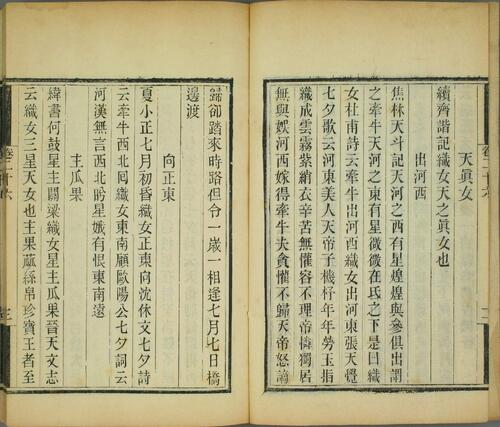 天眞女
續齊諧記織女天之眞女也
出河西
焦林天斗記天河之西有星煌煌與參俱出謂
之牽牛天河之東有星微微在氐之下是曰織
女杜甫詩云牽牛出河西織女出河東張天覺
七夕歌云河東美人天帝子機杼年年勞玉指
織成雲霧紫綃衣辛苦無懽容不理帝憐獨居
無與娛河西嫁得牽牛夫貪懽不歸天帝怒謫
二
歸卻踏來時路但令一歲一相逢七月七日橋
邊渡
向正東
夏小正七月初昏織女正東向沈休文七夕詩
云牽牛西北囘織女東南顧歐陽公七夕詞云
河漢無言西北盻星娥有恨東南遠
主瓜果
緯書何鼓星主關梁織女星主瓜果晉天文志
云織女三星天女也主果蓏絲帛珍寶王者至
三